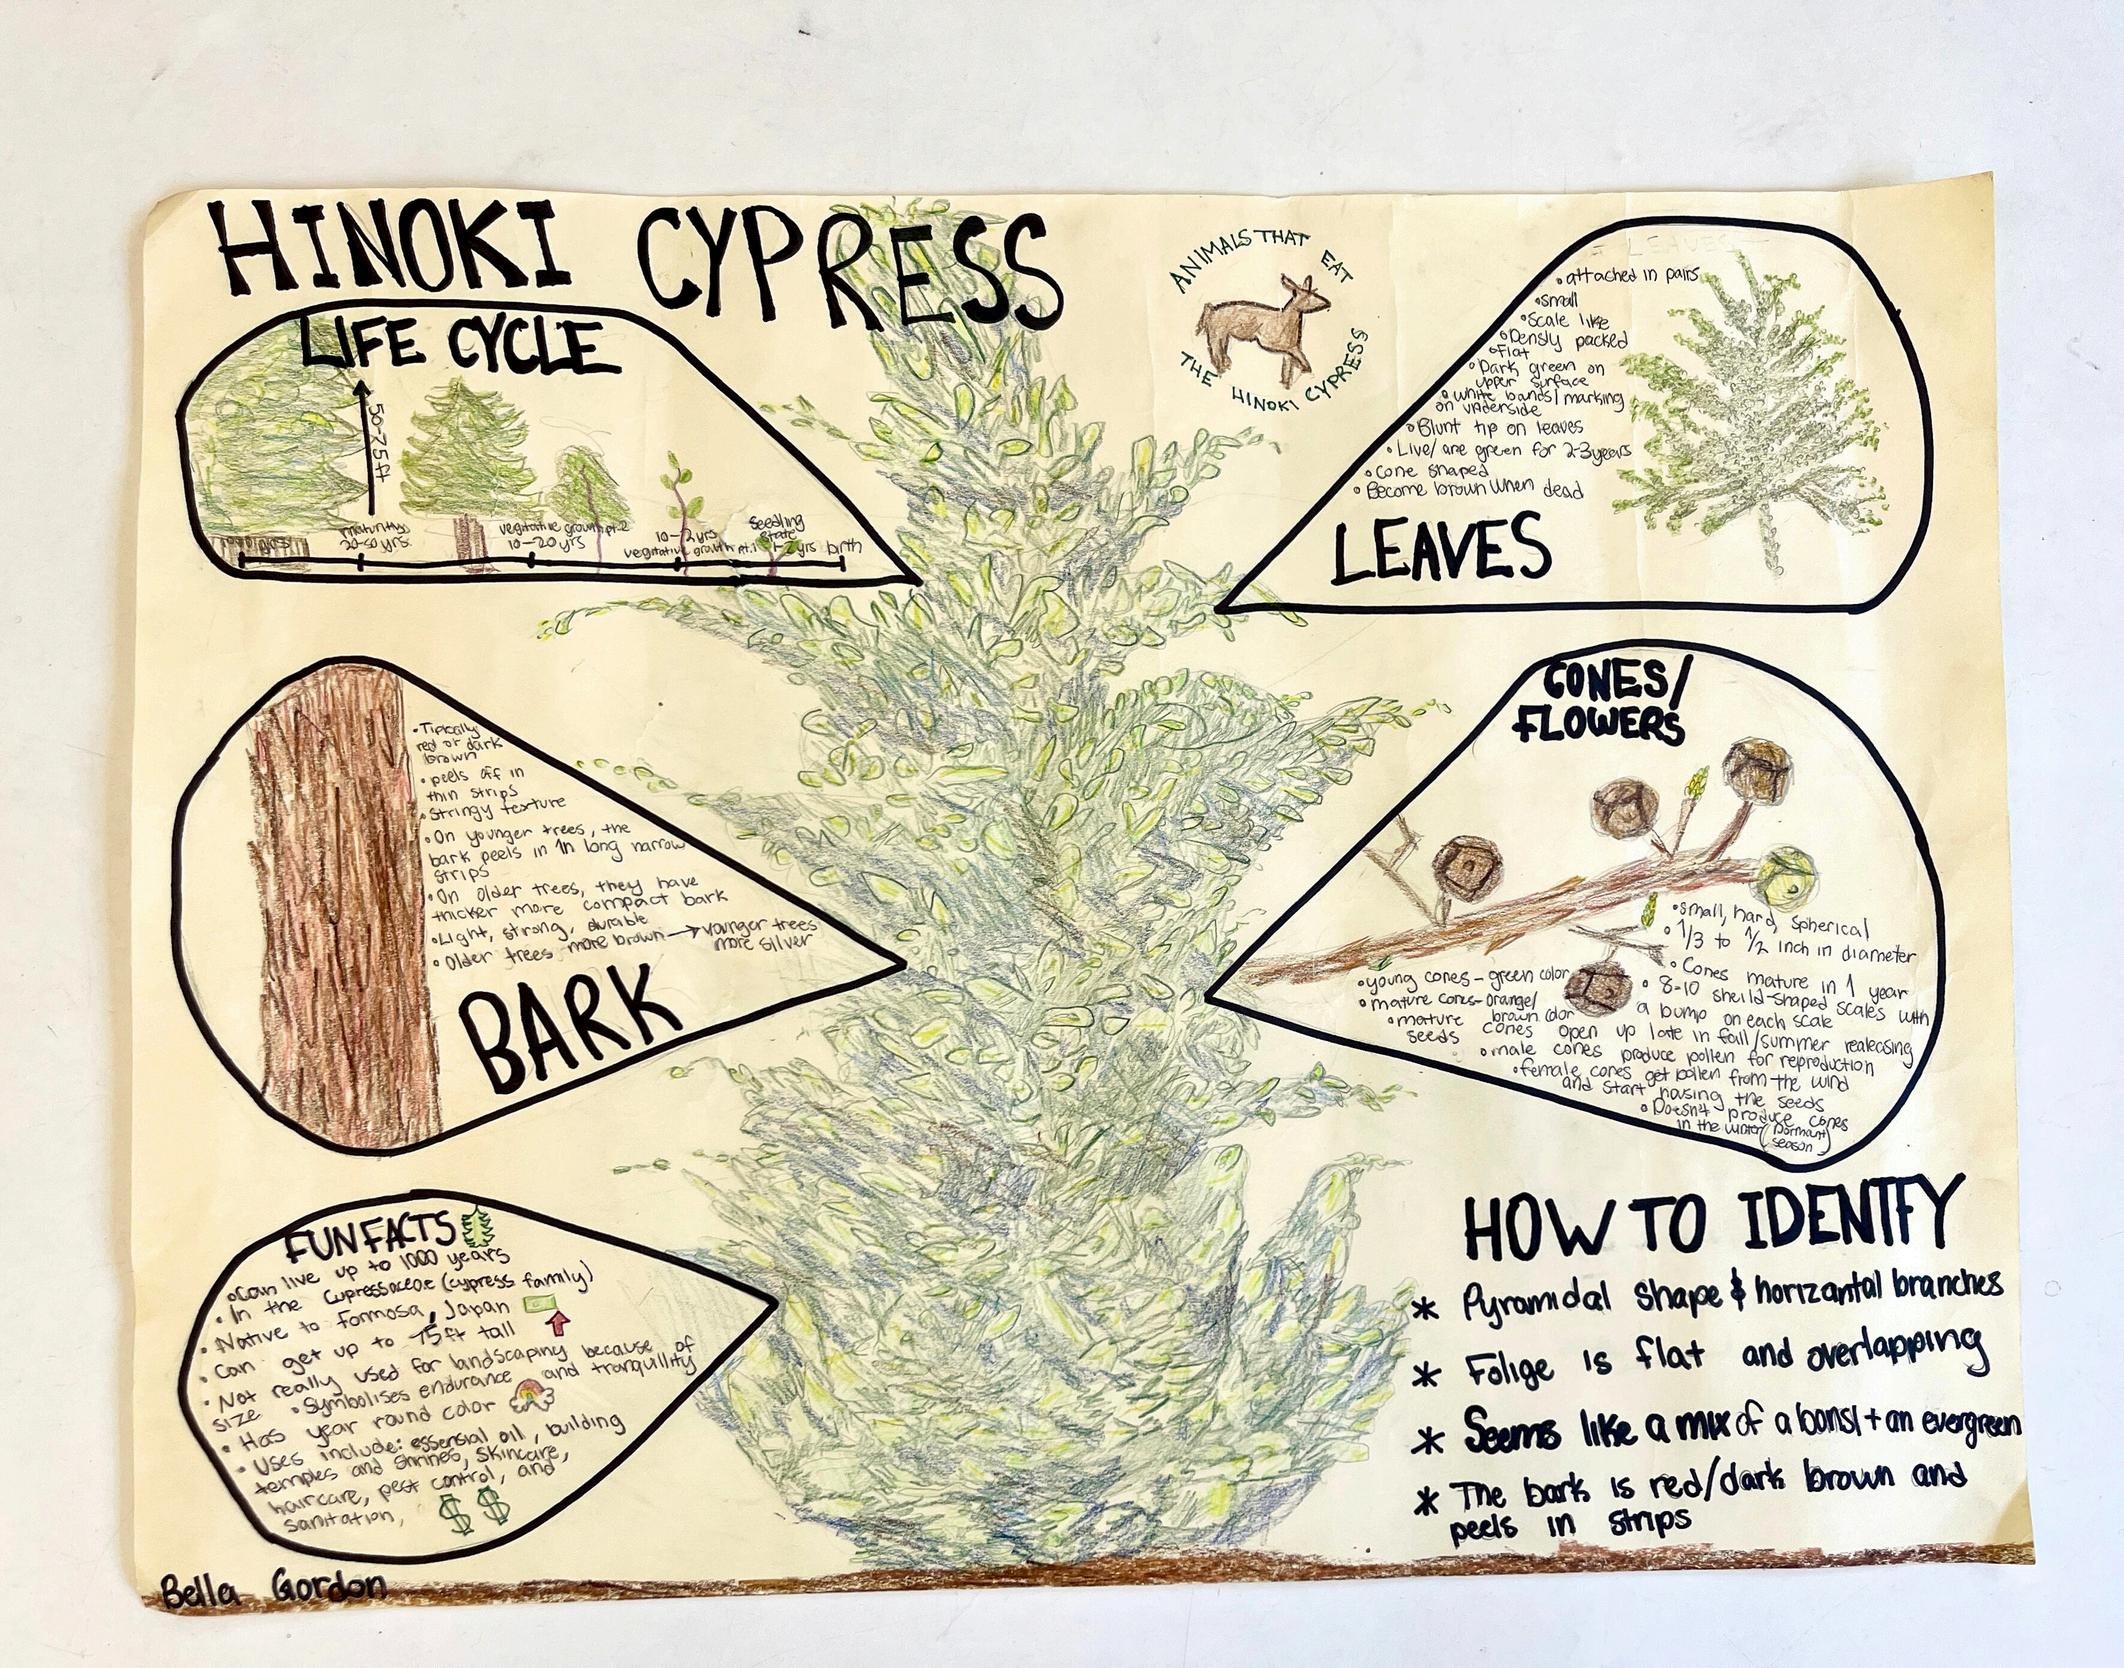 HINOKI CYPRESS
LIFE CYCLE
50-75ft
maturity
20-50 yrs.
vegitative growth pt.2
10-20 yrs
vegitative growth pt.1
Seedling
state
1-2 yrs
birth
ANIMALS THAT EAT
THE HINOKI CYPRESS
LEAVES
• attached in pairs
• small
• Scale like
• Densly packed
• Flat
• Dark green on
upper surface
• white bands/marking
on underside
• Blunt tip on leaves
• Live/are green for 2-3 years
• Cone shaped
• Become brown when dead
LEAVES
• Tipically
red or dark
brown
• peels off in
thin strips
• Stringy texture
• On younger trees, the
bark peels in in long narrow
strips
• On older trees, they have
thicker more compact bark
• Light, strong, durable
• Older trees more brown → younger trees
more silver
BARK
CONES/
FLOWERS
• small, hard, spherical
• 1/3 to 1/2 inch in diameter
• Cones mature in 1 year
• 8-10 sheild-shaped scales with
a bump on each scale
• young cones - green color
• mature cones - orange/
brown color
• mature cones open up late in fall/summer realeasing
seeds
• male cones produce pollen for reproduction
• female cones get pollen from the wind
and start housing the seeds
• Doesn't produce cones
in the winter (Dormant
season)
FUN FACTS
• Can live up to 1000 years
• In the Cupressaceae (cypress family)
• Native to Formosa, Japan
• Can get up to 75ft tall
• Not really used for landscaping because of
size
• Symbolises endurance and tranquillity
• Has year round color
• Uses include: essensial oil, building
temples and shrines, skincare,
haircare, pest control, and
sanitation,
$ $
HOW TO IDENTIFY
* Pyramidal Shape & horizantal branches
* Folige is flat and overlapping
* Seems like a mix of a bonsi + an evergreen
* The bark is red/dark brown and
peels in strips
Bella Gordon